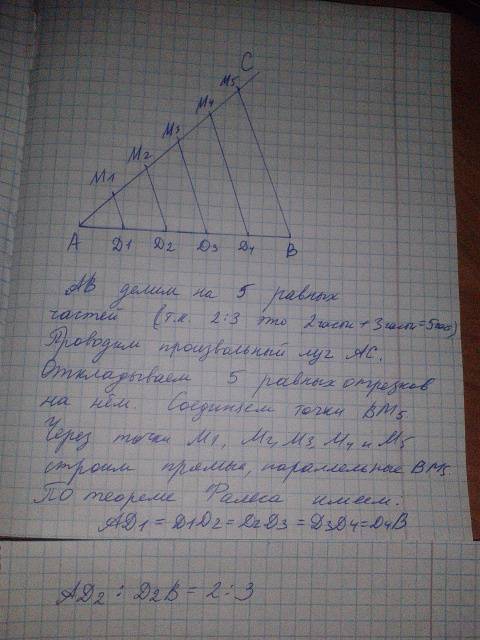 C
M5
M4
M3
M2
M1
A D1 D2 D3 D4 B
AB делим на 5 равных
частей (т.к. 2:3 это 2 части + 3 части = 5 час)
Проводим произвольный луч AC.
Откладываем 5 равных отрезков
на нём. Соединяем точки BM5
Через точки M1, M2, M3, M4 и M5
строим прямые, параллельные BM5
По теореме Фалеса имеем:
AD1 = D1D2 = D2D3 = D3D4 = D4B
AD2 : D2B = 2:3